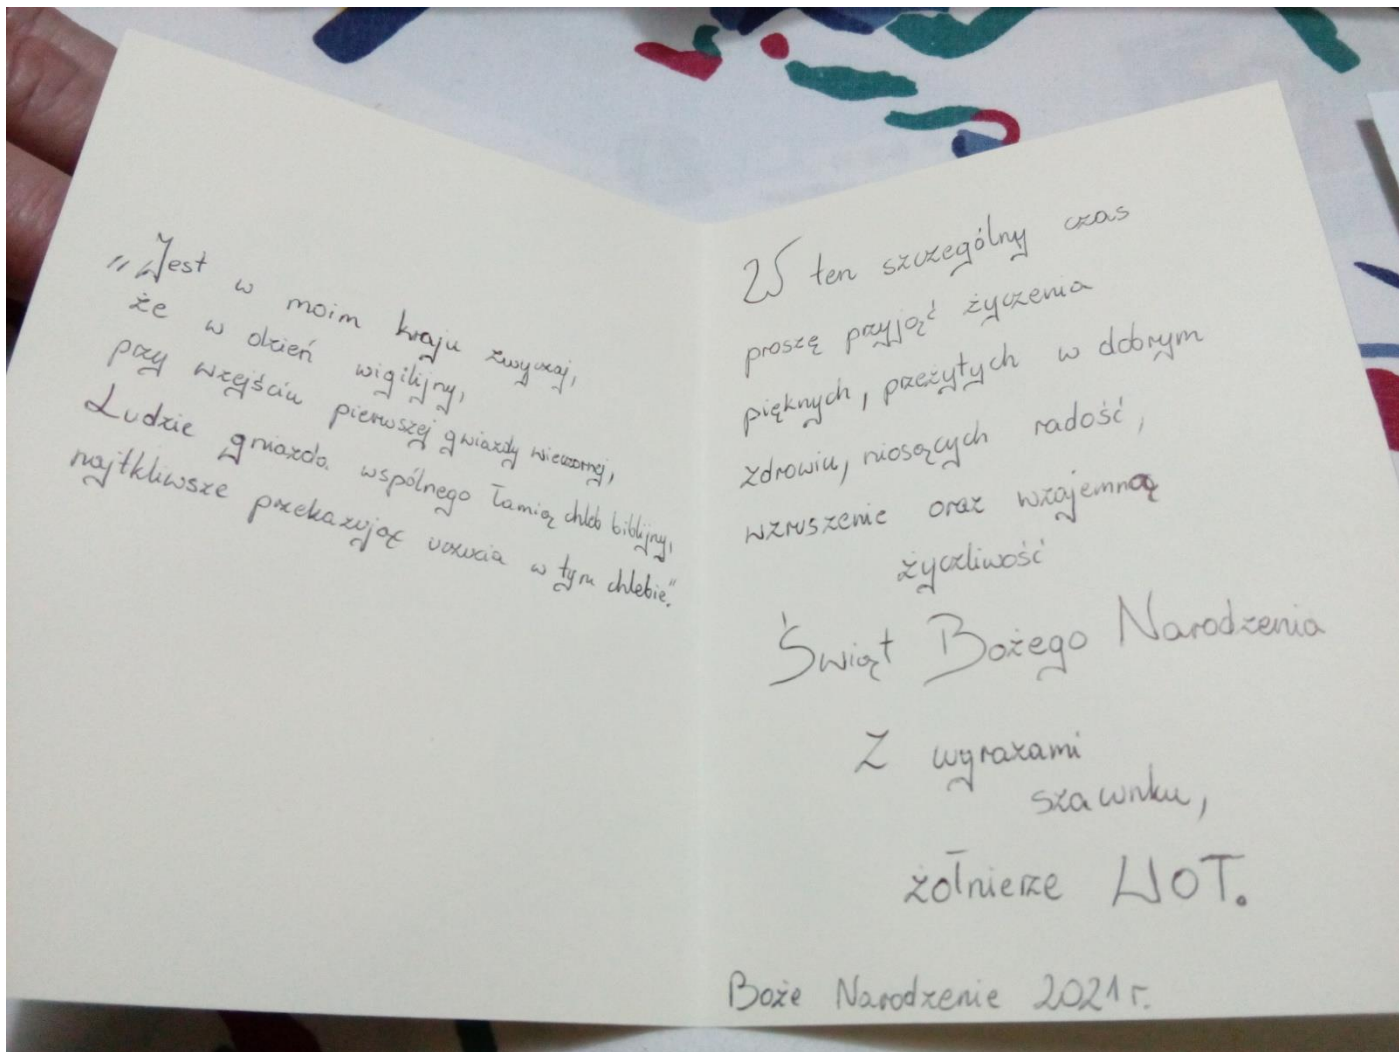 „Jest w moim kraju zwyczaj,
że w dzień wigilijny,
przy wzejściu pierwszej gwiazdy wieczornej,
Ludzie gniazda wspólnego łamią chleb biblijny,
najtkliwsze przekazując uczucia w tym chlebie."
W ten szczególny czas
proszę przyjąć życzenia
pięknych, przeżytych w dobrym
zdrowiu, niosących radość,
wzruszenie oraz wzajemną
życzliwość
Świąt Bożego Narodzenia
Z wyrazami
szawnku,
żołnierze WOT.
Boże Narodzenie 2021 r.